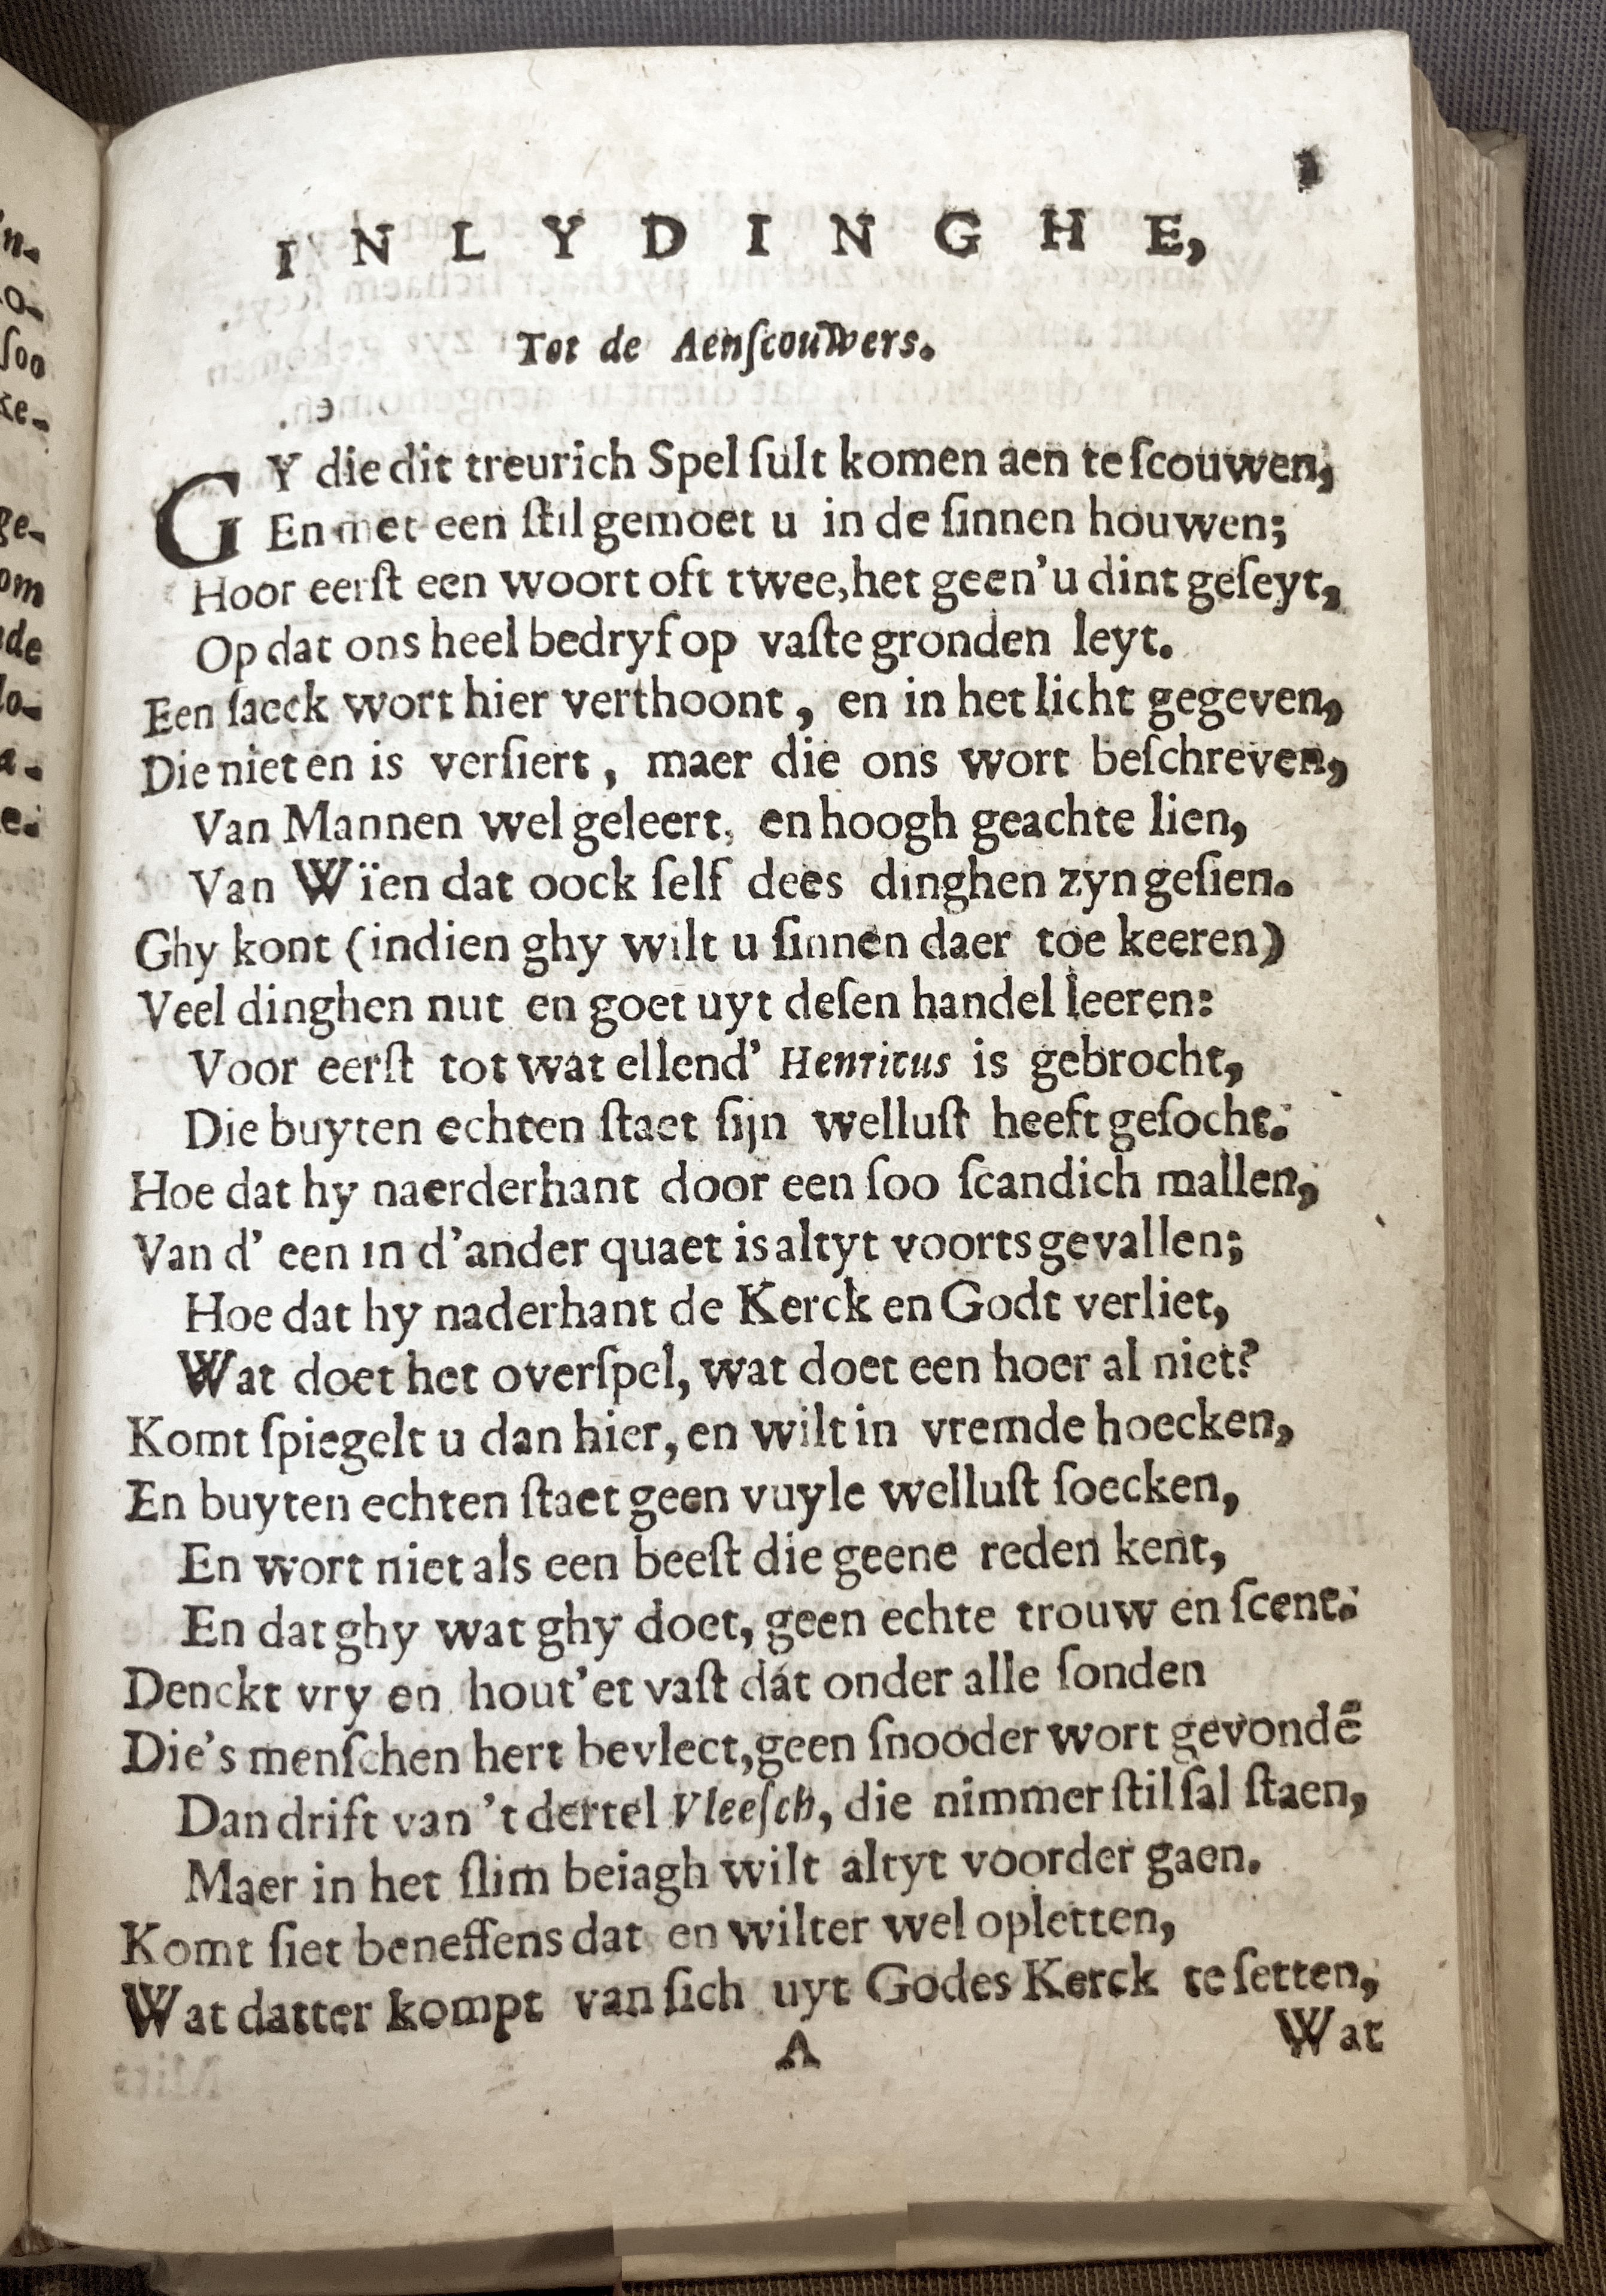 1
INLYDINGHE,
Tot de Aenſcouwers.
GY die dit treurich Spel ſult komen aen te ſcouwen,
En met een ſtil gemoet u in de ſinnen houwen;
Hoor eerſt een woort oft twee, het geen'u dint geſeyt,
Op dat ons heel bedryf op vaſte gronden leyt.
Een ſaeck wort hier verthoont, en in het licht gegeven,
Die niet en is verſiert, maer die ons wort beſchreven,
Van Mannen wel geleert, en hoogh geachte lien,
Van Wïen dat oock ſelf dees dinghen zyn geſien.
Ghy kont (indien ghy wilt u ſinnen daer toe keeren)
Veel dinghen nut en goet uyt deſen handel leeren:
Voor eerſt tot wat ellend' Henricus is gebrocht,
Die buyten echten ſtaet ſijn welluſt heeft geſocht:
Hoe dat hy naerderhant door een ſoo ſcandich mallen,
Van d' een in d'ander quaet is altyt voorts gevallen;
Hoe dat hy naderhant de Kerck en Godt verliet,
Wat doet het overſpel, wat doet een hoer al niet?
Komt ſpiegelt u dan hier, en wilt in vremde hoecken,
En buyten echten ſtaet geen vuyle welluſt ſoecken,
En wort niet als een beeſt die geene reden kent,
En dat ghy wat ghy doet, geen echte trouw en ſcent:
Denckt vry en hout'et vaſt dat onder alle ſonden
Die's menſchen hert bevlect, geen ſnooder wort gevondē
Dan drift van 't dertel Vleeſch, die nimmer ſtil ſal ſtaen,
Maer in het ſlim beiagh wilt altyt voorder gaen.
Komt ſiet beneffens dat en wilter wel opletten,
Wat datter kompt van ſich uyt Godes Kerck te ſetten,
A Wat